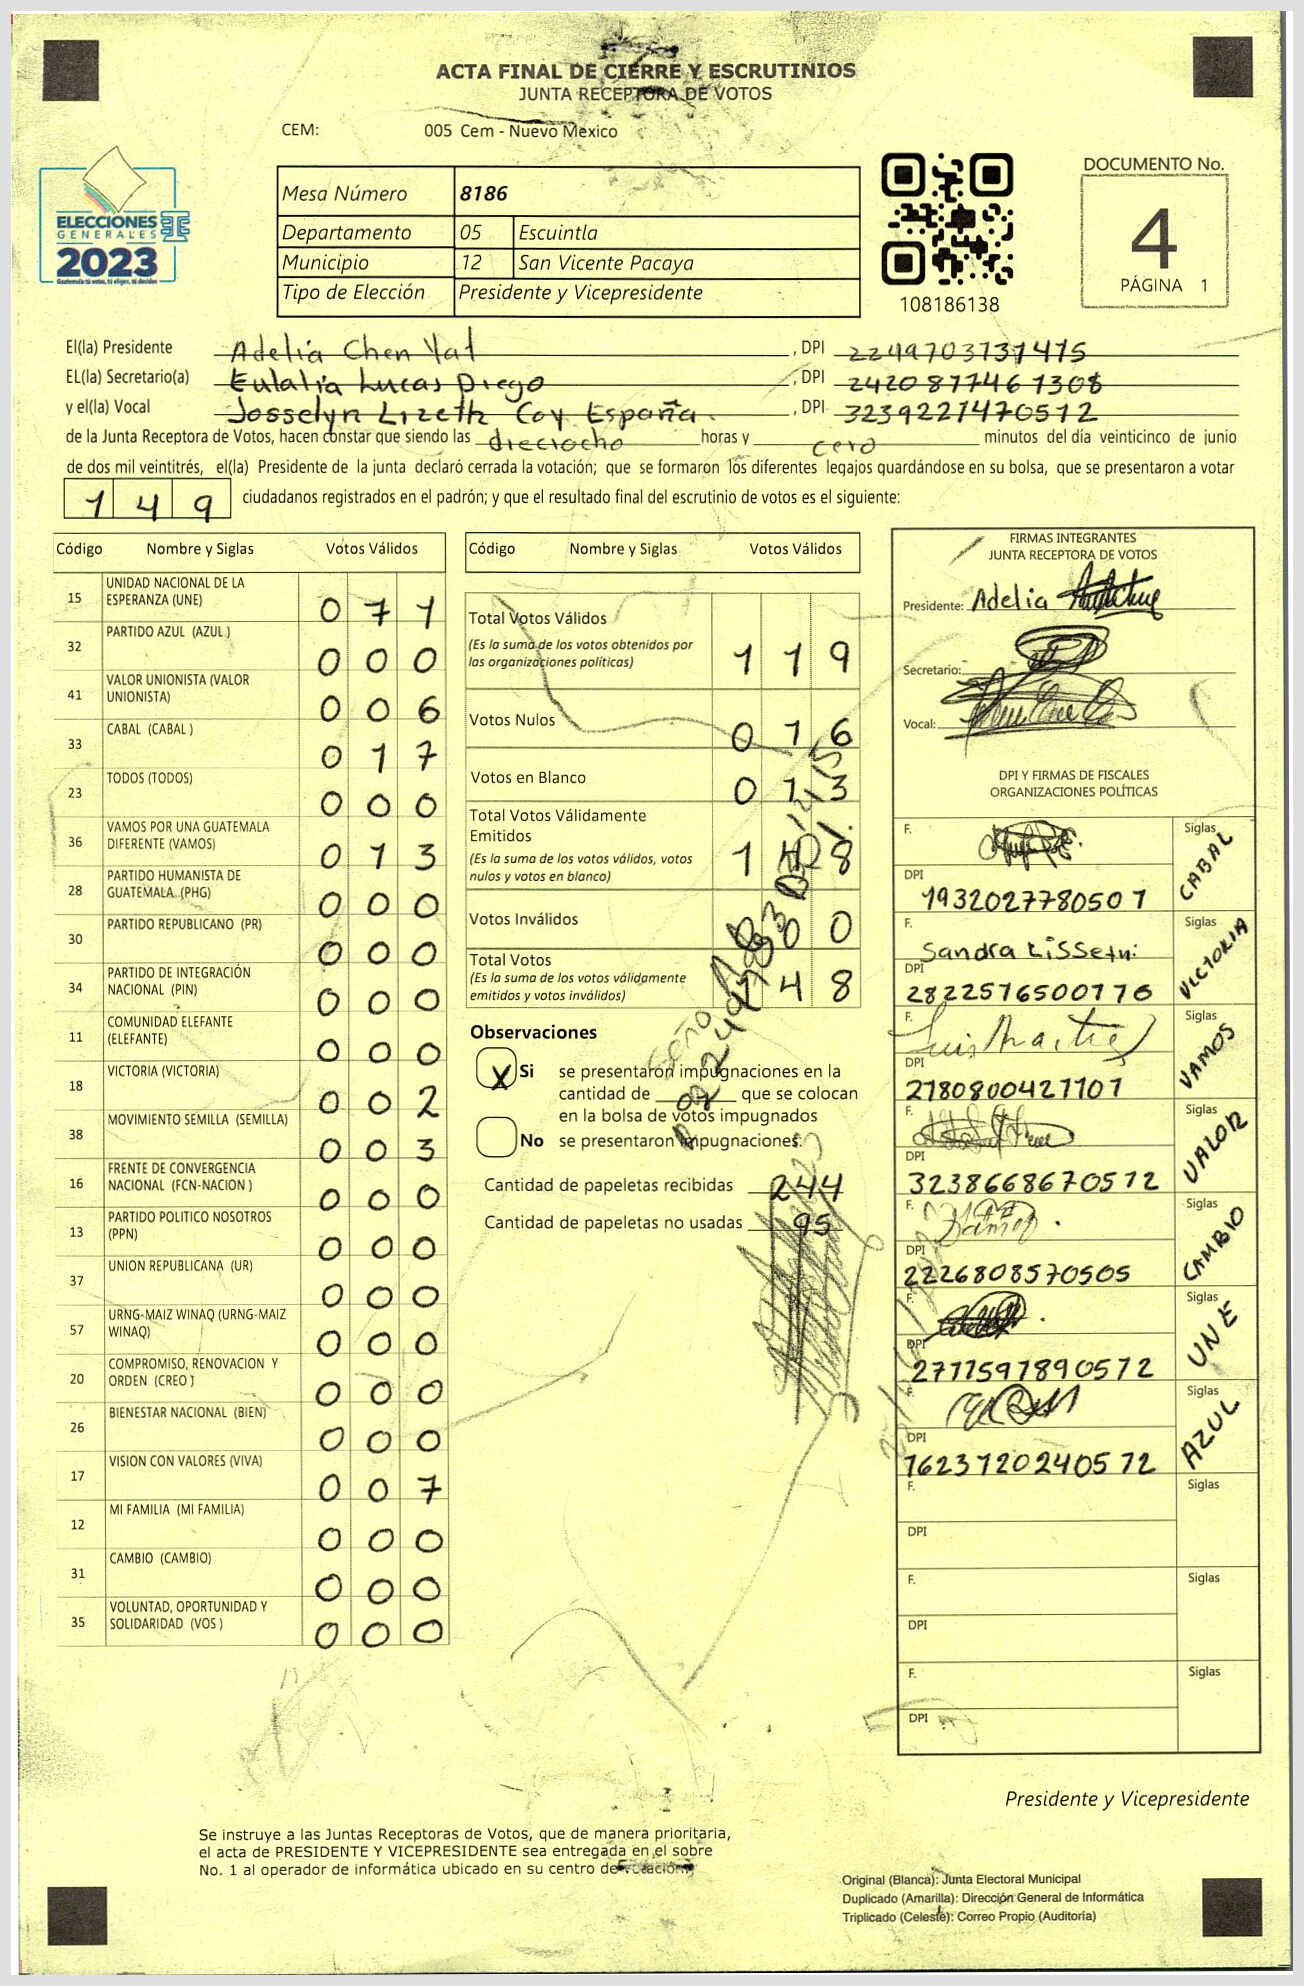 ACTA FINAL DE CIERRE Y ESCRUTINIOS
JUNTA RECEPTORA DE VOTOS
CEM: 005 Cem - Nuevo Mexico
ELECCIONES
GENERALES
2023
Guatemala tú votas, tú eliges, tú decides
Mesa Número 8186
Departamento 05 Escuintla
Municipio 12 San Vicente Pacaya
Tipo de Elección Presidente y Vicepresidente
108186138
DOCUMENTO No.
4
PÁGINA 1
El(la) Presidente Adelia Chen Yat, DPI 2249703731415
EL(la) Secretario(a) Eulalia Lucas Diego, DPI 2420877461308
y el(la) Vocal Josselyn Lizeth Coy España., DPI 3239221470512
de la Junta Receptora de Votos, hacen constar que siendo las dieciocho horas y cero minutos del día veinticinco de junio
de dos mil veintitrés, el(la) Presidente de la junta declaró cerrada la votación; que se formaron los diferentes legajos quardándose en su bolsa, que se presentaron a votar
149 ciudadanos registrados en el padrón; y que el resultado final del escrutinio de votos es el siguiente:
Código Nombre y Siglas Votos Válidos
15 UNIDAD NACIONAL DE LA ESPERANZA (UNE) 071
32 PARTIDO AZUL (AZUL ) 000
41 VALOR UNIONISTA (VALOR UNIONISTA) 006
33 CABAL (CABAL ) 017
23 TODOS (TODOS) 000
36 VAMOS POR UNA GUATEMALA DIFERENTE (VAMOS) 013
28 PARTIDO HUMANISTA DE GUATEMALA (PHG) 000
30 PARTIDO REPUBLICANO (PR) 000
34 PARTIDO DE INTEGRACIÓN NACIONAL (PIN) 000
11 COMUNIDAD ELEFANTE (ELEFANTE) 000
18 VICTORIA (VICTORIA) 002
38 MOVIMIENTO SEMILLA (SEMILLA) 003
16 FRENTE DE CONVERGENCIA NACIONAL (FCN-NACION ) 000
13 PARTIDO POLITICO NOSOTROS (PPN) 000
37 UNION REPUBLICANA (UR) 000
57 URNG-MAIZ WINAQ (URNG-MAIZ WINAQ) 000
20 COMPROMISO, RENOVACION Y ORDEN (CREO ) 000
26 BIENESTAR NACIONAL (BIEN) 000
17 VISION CON VALORES (VIVA) 007
12 MI FAMILIA (MI FAMILIA) 000
31 CAMBIO (CAMBIO) 000
35 VOLUNTAD, OPORTUNIDAD Y SOLIDARIDAD (VOS ) 000
Código Nombre y Siglas Votos Válidos
Total Votos Válidos
(Es la suma de los votos obtenidos por
las organizaciones políticas) 119
Votos Nulos 016
Votos en Blanco 013
Total Votos Válidamente
Emitidos
(Es la suma de los votos válidos, votos
nulos y votos en blanco) 148
Votos Inválidos 000
Total Votos
(Es la suma de los votos válidamente
emitidos y votos inválidos) 148
Observaciones
X Si se presentaron impugnaciones en la
cantidad de que se colocan
en la bolsa de votos impugnados
No se presentaron impugnaciones.
Cantidad de papeletas recibidas 244
Cantidad de papeletas no usadas 95
FIRMAS INTEGRANTES
JUNTA RECEPTORA DE VOTOS
Presidente: Adelia
Secretario:
Vocal:
DPI Y FIRMAS DE FISCALES
ORGANIZACIONES POLÍTICAS
F. Siglas CABAL
DPI 1932027780501
F. Sandra Lissett Siglas VICTORIA
DPI 2822516500110
F. Luis Martiez Siglas VAMOS
DPI 2180800421101
F. Siglas VALOR
DPI 3238668670512
F. Siglas CAMBIO
DPI 2226808570505
F. Siglas UNE
DPI 2771591890512
F. Siglas AZUL
DPI 1623120240512
F. Siglas
DPI
F. Siglas
DPI
F. Siglas
DPI
Presidente y Vicepresidente
Se instruye a las Juntas Receptoras de Votos, que de manera prioritaria,
el acta de PRESIDENTE Y VICEPRESIDENTE sea entregada en el sobre
No. 1 al operador de informática ubicado en su centro de votación.
Original (Blanca): Junta Electoral Municipal
Duplicado (Amarilla): Dirección General de Informática
Triplicado (Celeste): Correo Propio (Auditoría)